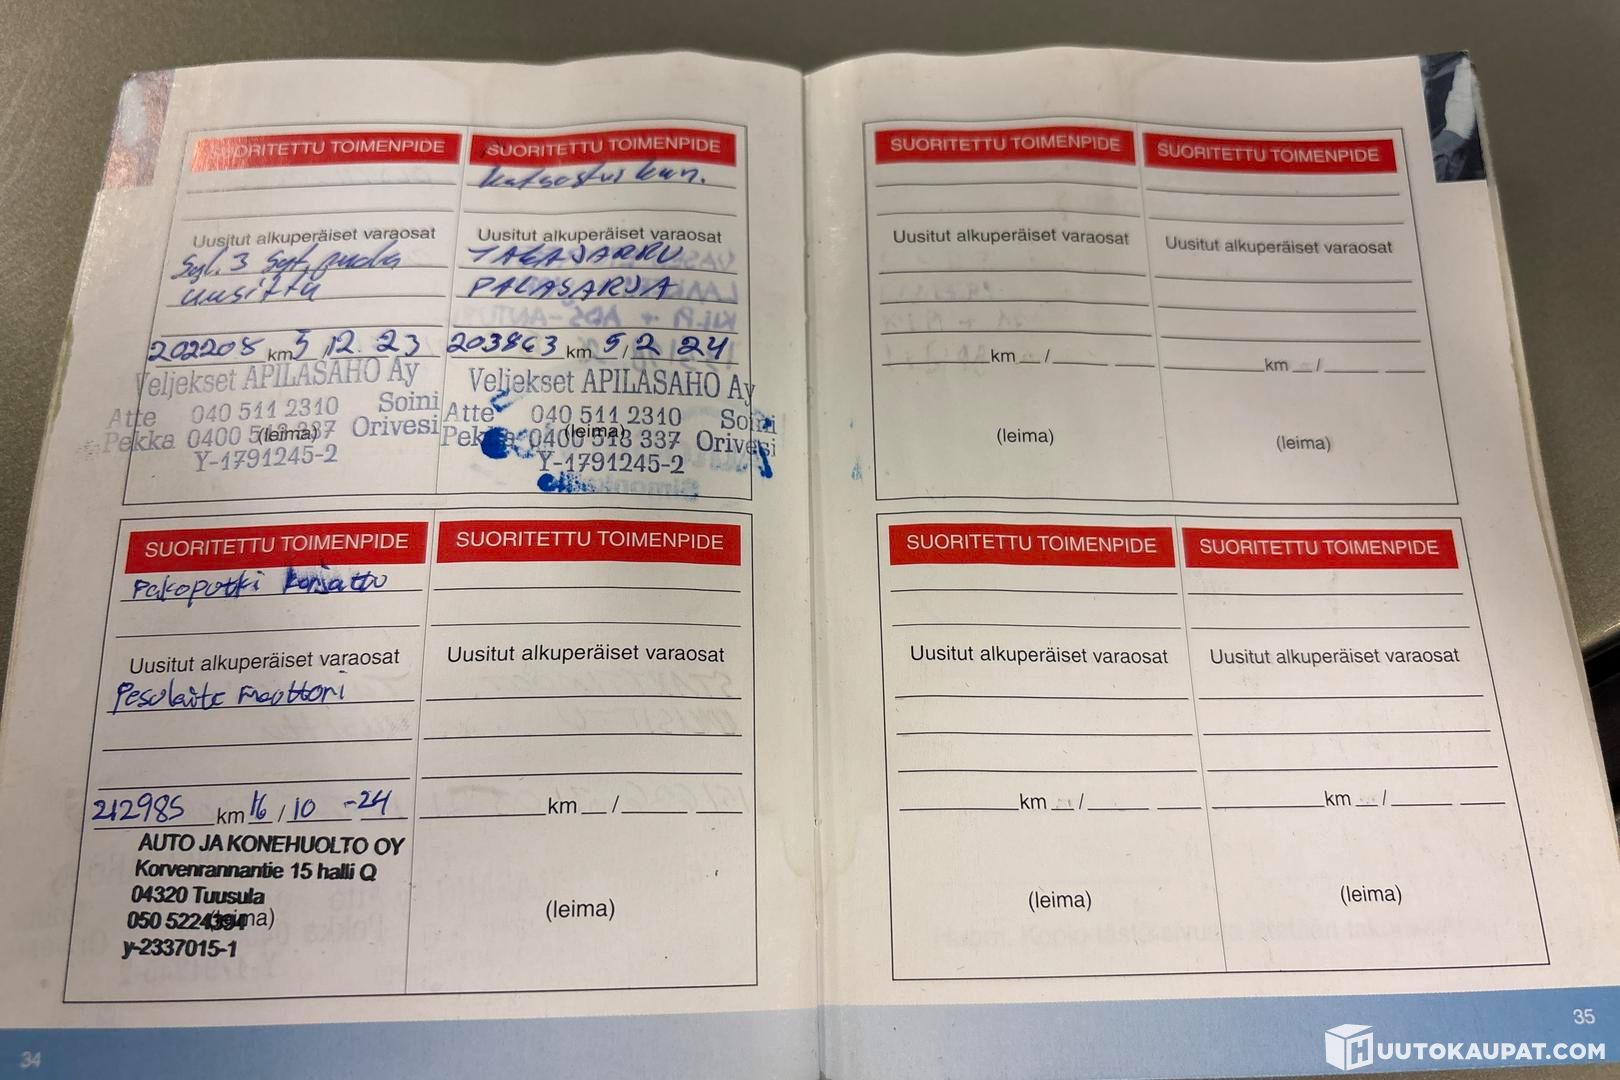 SUORITETTU TOIMENPIDE
Uusitut alkuperäiset varaosat
Syl. 3 Syt. puola
uusittu
202205 km 5 12. 23
Veljekset APILASAHO Ay
Atte 040 511 2310 Soini
Pekka 0400 513 337 Orivesi
(leima)
Y-1791245-2
SUORITETTU TOIMENPIDE
Katsastus kun.
Uusitut alkuperäiset varaosat
TAKAJARRU
PALASARJA
203863 km 5/2 24
Veljekset APILASAHO Ay
Atte 040 511 2310 Soini
Pekka 0400 513 337 Orivesi
(leima)
Y-1791245-2
SUORITETTU TOIMENPIDE
Pakoputki korjattu
Uusitut alkuperäiset varaosat
Pesulaite moottori
212985 km 16/10 -24
AUTO JA KONEHUOLTO OY
Korvenrannantie 15 halli Q
04320 Tuusula
050 5224394
(leima)
y-2337015-1
SUORITETTU TOIMENPIDE
Uusitut alkuperäiset varaosat
km /
(leima)
34
SUORITETTU TOIMENPIDE
Uusitut alkuperäiset varaosat
km /
(leima)
SUORITETTU TOIMENPIDE
Uusitut alkuperäiset varaosat
km /
(leima)
SUORITETTU TOIMENPIDE
Uusitut alkuperäiset varaosat
km /
(leima)
SUORITETTU TOIMENPIDE
Uusitut alkuperäiset varaosat
km /
(leima)
35
HUUTOKAUPAT.COM